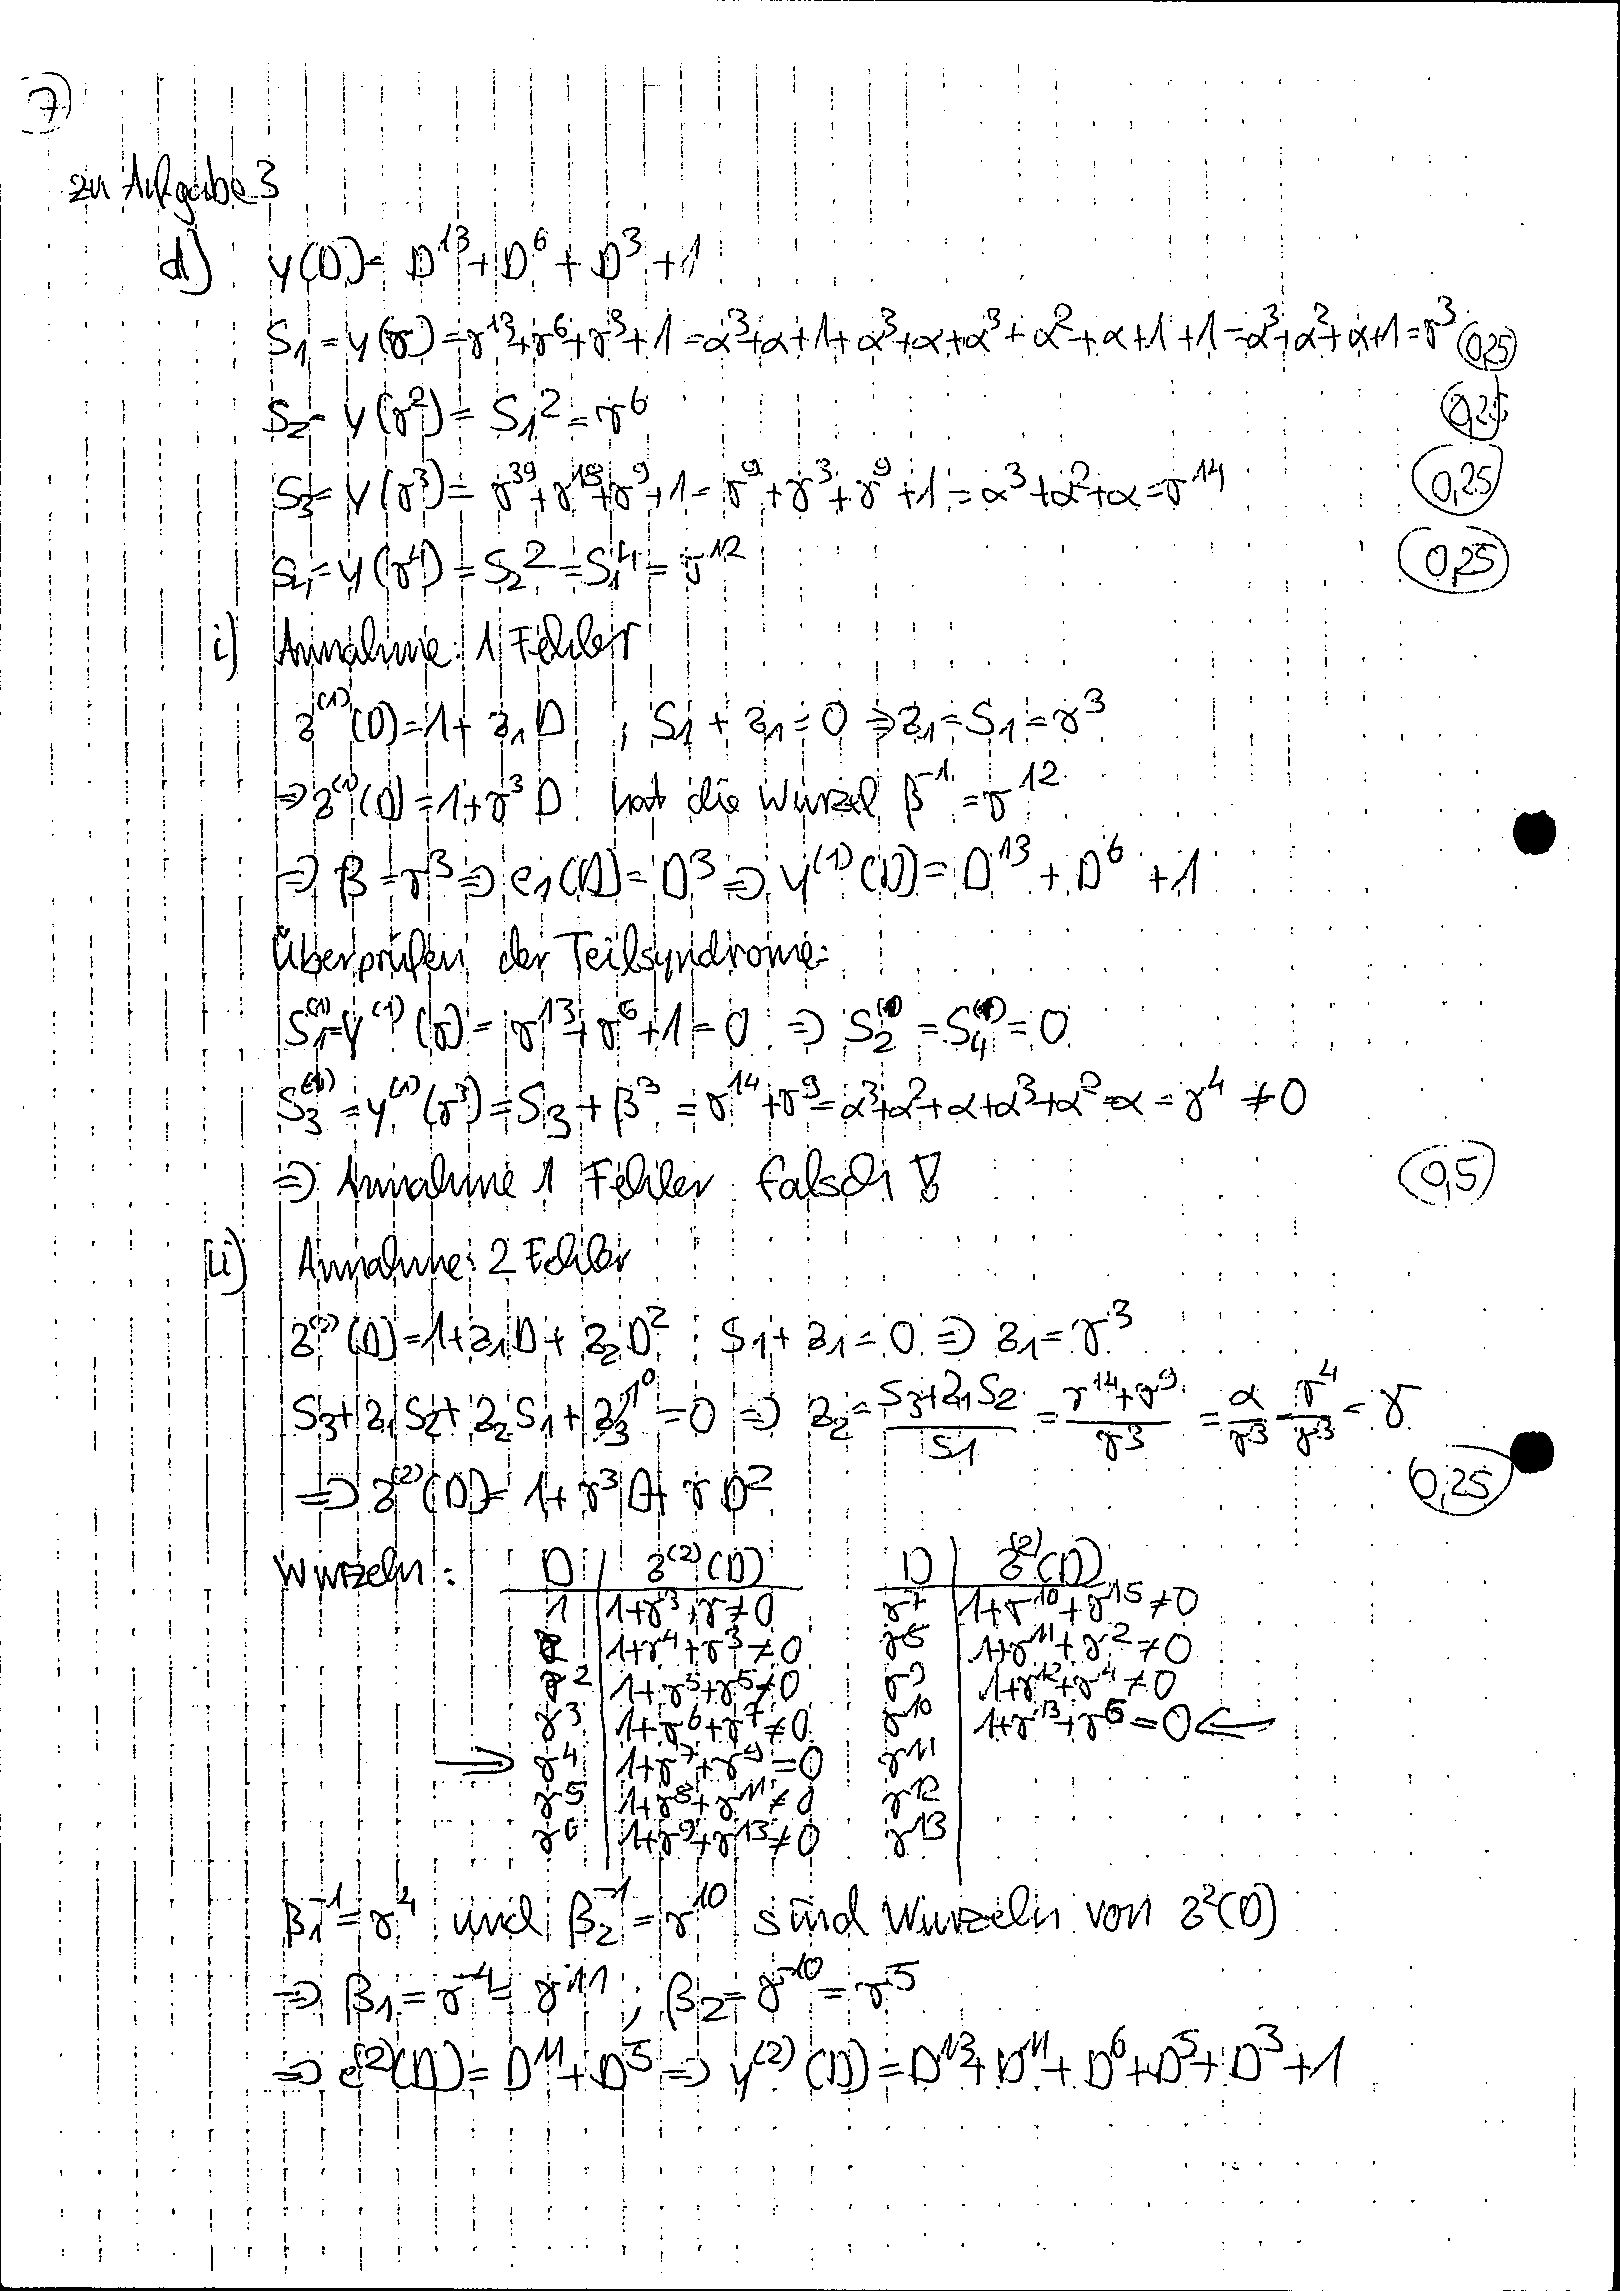 7)
zu Aufgabe 3
d) y(D) = D^13 + D^6 + D^3 + 1
S1 = y(γ) = γ^13 + γ^6 + γ^3 + 1 = α^3 + α + 1 + α^3 + α + α^3 + α^2 + α + 1 + 1 = α^3 + α^2 + α + 1 = γ^3 (0,25)
S2 = y(γ^2) = S1^2 = γ^6 (0,25)
S3 = y(γ^3) = γ^39 + γ^18 + γ^9 + 1 = γ^9 + γ^3 + γ^9 + 1 = α^3 + α^2 + α = γ^14 (0,25)
S4 = y(γ^4) = S2^2 = S1^4 = γ^12 (0,25)
i) Annahme: 1 Fehler
z^(1)(D) = 1 + z1 D ; S1 + z1 = 0 ⇒ z1 = S1 = γ^3
⇒ z^(1)(D) = 1 + γ^3 D hat die Wurzel β^-1 = γ^12
⇒ β = γ^3 ⇒ e1(D) = D^3 ⇒ y^(1)(D) = D^13 + D^6 + 1
Überprüfen der Teilsyndrome:
S1^(1) = y^(1)(γ) = γ^13 + γ^6 + 1 = 0 ⇒ S2^(1) = S4^(1) = 0
S3^(1) = y^(1)(γ^3) = S3 + β^3 = γ^14 + γ^9 = α^3 + α^2 + α + α^3 + α^2 = α = γ^4 ≠ 0
⇒ Annahme 1 Fehler falsch ! (0,5)
ii) Annahme: 2 Fehler
z^(2)(D) = 1 + z1 D + z2 D^2 ; S1 + z1 = 0 ⇒ z1 = γ^3
S3 + z1 S2 + z2 S1 + z3 ↗0 = 0 ⇒ z2 = (S3 + z1 S2)/S1 = (γ^14 + γ^9)/γ^3 = α/γ^3 = γ^4/γ^3 = γ
⇒ z^(2)(D) = 1 + γ^3 D + γ D^2 (0,25)
Wurzeln: D | z^(2)(D) D | z^(2)(D)
1 | 1+γ^3+γ ≠ 0 γ^7 | 1+γ^10+γ^15 ≠ 0
γ | 1+γ^4+γ^3 ≠ 0 γ^8 | 1+γ^11+γ^2 ≠ 0
γ^2 | 1+γ^5+γ^5 ≠ 0 γ^9 | 1+γ^12+γ^4 ≠ 0
γ^3 | 1+γ^6+γ^7 ≠ 0 γ^10 | 1+γ^13+γ^6 = 0 ⇐
⇒ γ^4 | 1+γ^7+γ^9 = 0 γ^11 |
γ^5 | 1+γ^8+γ^11 ≠ 0 γ^12 |
γ^6 | 1+γ^9+γ^13 ≠ 0 γ^13 |
β1^-1 = γ^4 und β2^-1 = γ^10 sind Wurzeln von z^2(D)
⇒ β1 = γ^-4 = γ^11 ; β2 = γ^-10 = γ^5
⇒ e^(2)(D) = D^11 + D^5 ⇒ y^(2)(D) = D^13 + D^11 + D^6 + D^5 + D^3 + 1